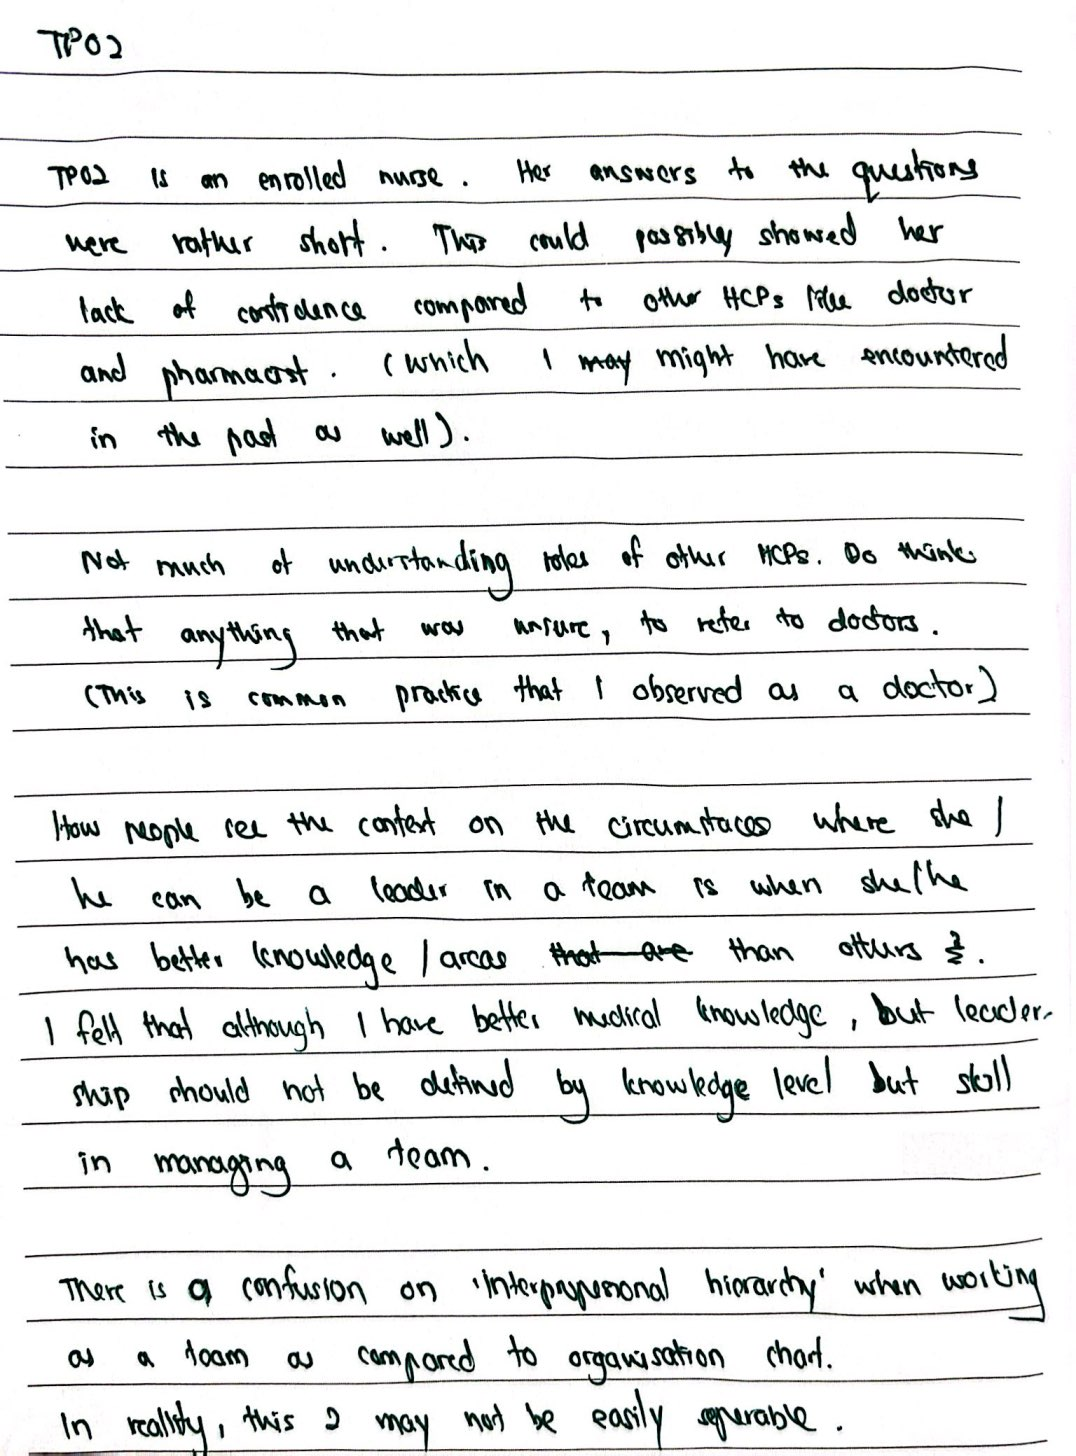 TP02
TP02 is an enrolled nurse. Her answers to the questions
were rather short. This could possibly showed her
lack of confidence compared to other HCPs like doctor
and pharmacist. (which I may might have encountered
in the past as well).
Not much of understanding roles of other HCPs. Do think
that anything that was unsure, to refer to doctors.
(This is common practice that I observed as a doctor)
How people see the context on the circumstaces where she /
he can be a leader in a team is when she/he
has better knowledge / areas that are than others.
I felt that although I have better medical knowledge, but leader-
ship should not be defined by knowledge level but skill
in managing a team.
There is a confusion on 'interprofessional hierarchy' when working
as a team as compared to organisation chart.
In reality, this 2 may not be easily seperable.